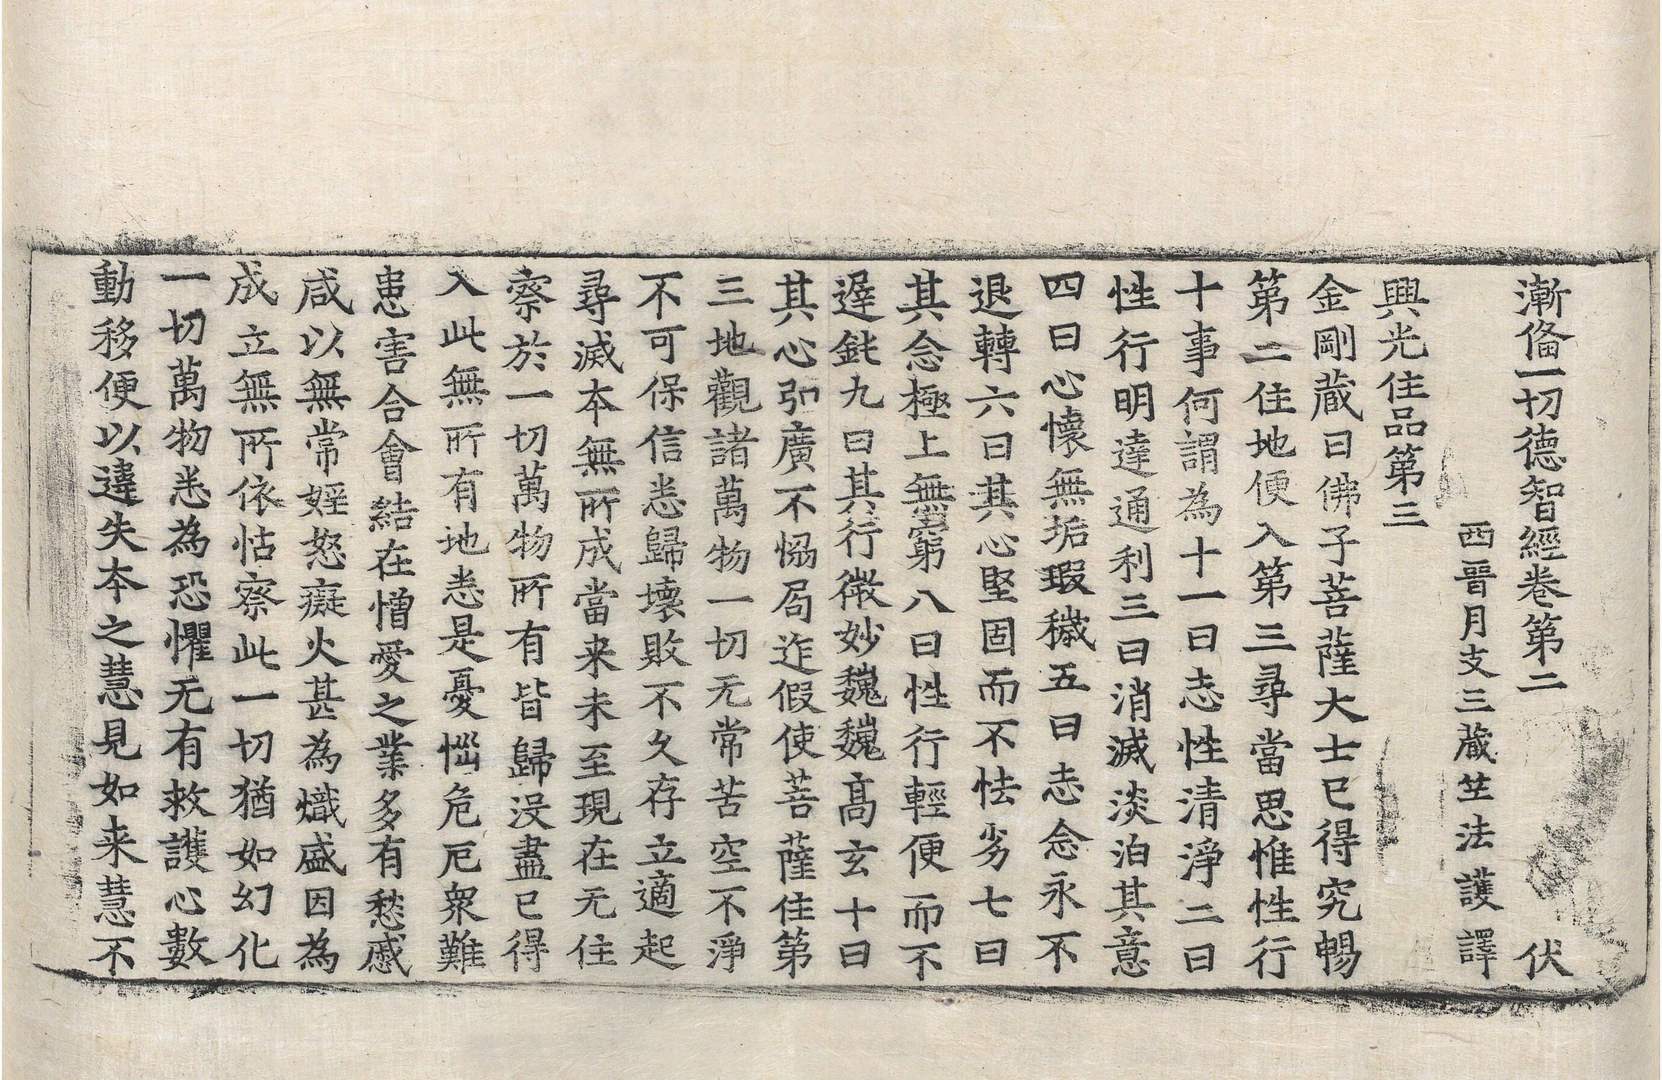 漸俻一切德智經卷第二　伏
西晉月支三藏竺法護譯
興光住品第三
金剛藏曰佛子菩薩大士已得究暢
第二住地便入第三尋當思惟性行
十事何謂為十一曰志性清淨二曰
性行明達通利三曰消滅淡泊其意
四曰心懷無垢瑕穢五曰志念永不
退轉六曰其心堅固而不怯劣七曰
其念極上無窮八曰性行輕便而不
遲鈍九曰其行微妙巍巍髙玄十曰
其心弘廣不恊局迮假使菩薩住第
三地觀諸萬物一切无常苦空不淨
不可保信悉歸壞敗不久存立適起
尋滅本無所成當来未至現在无住
察於一切萬物所有皆歸没盡已得
入此無所有地悉是憂惱危厄衆難
患害合會結在憎愛之業多有愁慼
咸以無常婬怒癡火甚為熾盛因為
成立無所依怙察此一切猶如幻化
一切萬物悉為恐懼无有救護心數
動移便以違失本之慧見如来慧不